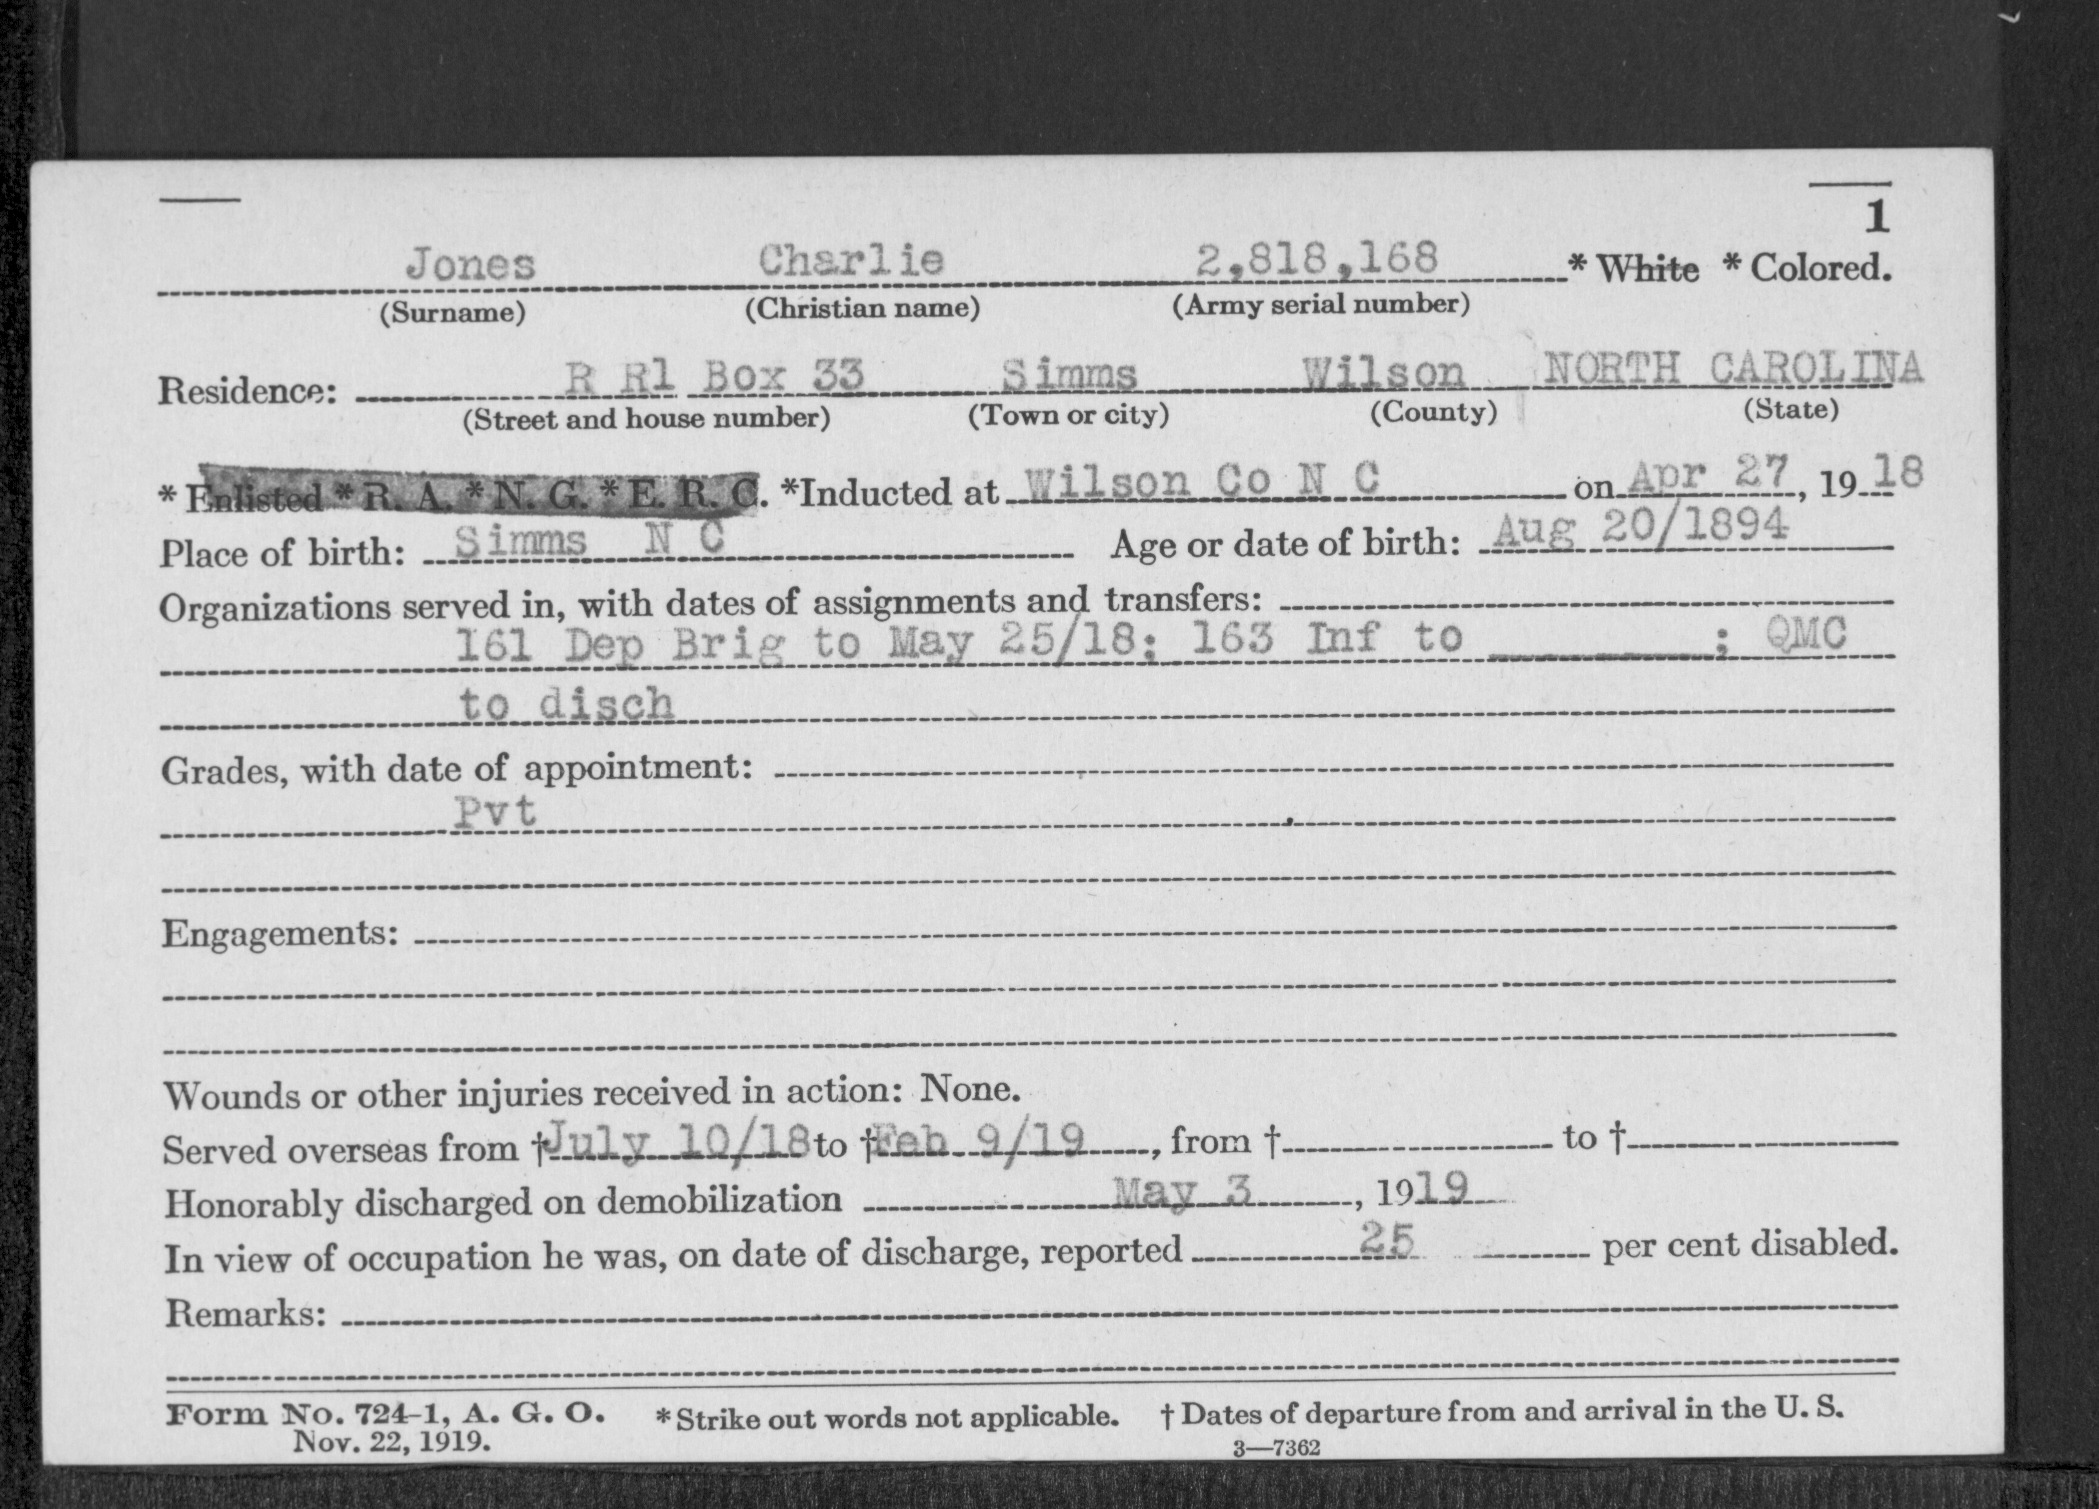 1
Jones Charlie 2,818,168 * White * Colored.
(Surname) (Christian name) (Army serial number)
Residence: R R1 Box 33 Simms Wilson NORTH CAROLINA
(Street and house number) (Town or city) (County) (State)
* Enlisted * R. A. * N. G. * E. R. C. *Inducted at Wilson Co N C on Apr 27, 1918
Place of birth: Simms N C Age or date of birth: Aug 20/1894
Organizations served in, with dates of assignments and transfers:
161 Dep Brig to May 25/18; 163 Inf to ______; QMC
to disch
Grades, with date of appointment:
Pvt
Engagements:
Wounds or other injuries received in action: None.
Served overseas from † July 10/18 to † Feb 9/19, from † to †
Honorably discharged on demobilization May 3, 1919
In view of occupation he was, on date of discharge, reported 25 per cent disabled.
Remarks:
Form No. 724-1, A. G. O. * Strike out words not applicable. † Dates of departure from and arrival in the U. S.
Nov. 22, 1919. 3—7362